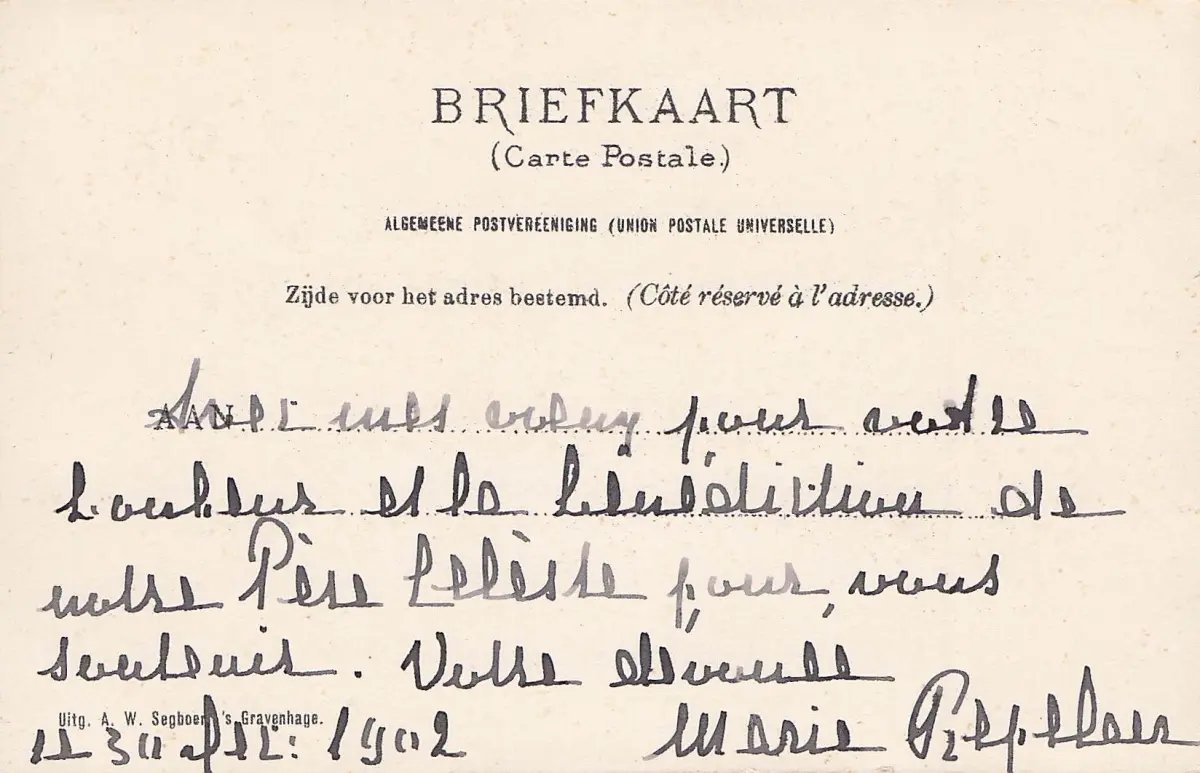 BRIEFKAART
(Carte Postale.)
ALGEMEENE POSTVEREENIGING (UNION POSTALE UNIVERSELLE)
Zijde voor het adres bestemd. (Côté réservé à l'adresse.)
AAN
Avec mes voeux pour votre
bonheur et la bénédiction de
notre Père Celèste pour vous
soutenir. Votre dévouée
Uitg. A. W. Segboer 's Gravenhage.
le 30 1902 Marie